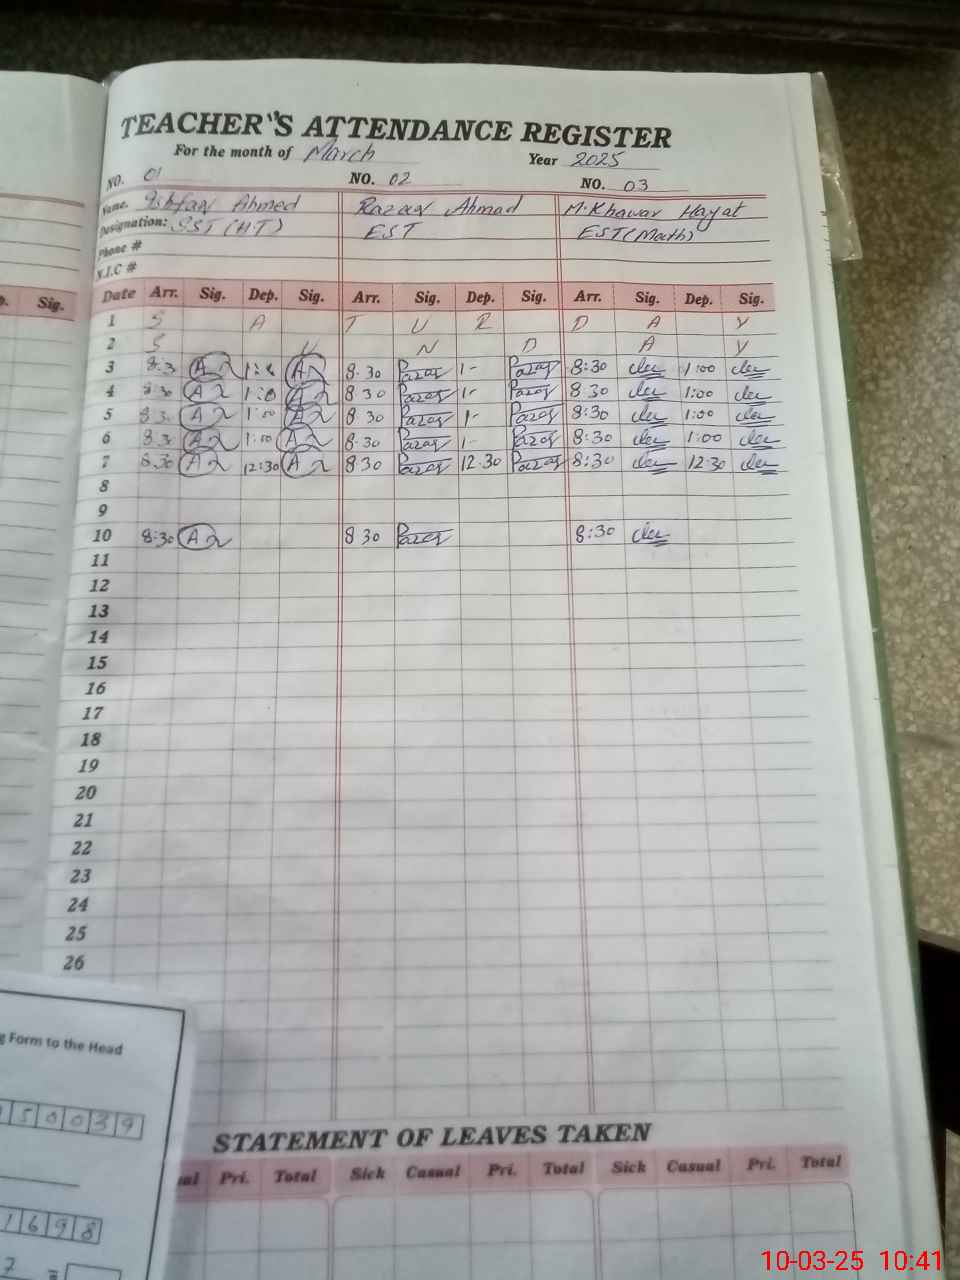 TEACHER"S ATTENDANCE REGISTER
For the month of March Year 2025
NO. 01 NO. 02 NO. 03
Name. Ishfaq Ahmed Razaq Ahmad M. Khawar Hayat
Designation: SST (H.T) EST EST (Math)
Phone #
N.I.C #
Date Arr. Sig. Dep. Sig. Arr. Sig. Dep. Sig. Arr. Sig. Dep. Sig.
Sig.
1 S A T U R D A Y
2 S U N D A Y
3 8:30 1:00 8.30 1- 8:30 1:00
4 8:30 1:00 8.30 1- 8.30 1:00
5 8:30 1:00 8.30 1- 8:30 1:00
6 8:30 1:00 8.30 1- 8:30 1:00
7 8:30 12:30 8.30 12.30 8:30 12.30
8
9
10 8:30 8 30 8:30
11
12
13
14
15
16
17
18
19
20
21
22
23
24
25
26
g Form to the Head
150039
1698
7 =
STATEMENT OF LEAVES TAKEN
ual Pri. Total Sick Casual Pri. Total Sick Casual Pri. Total
10-03-25 10:41